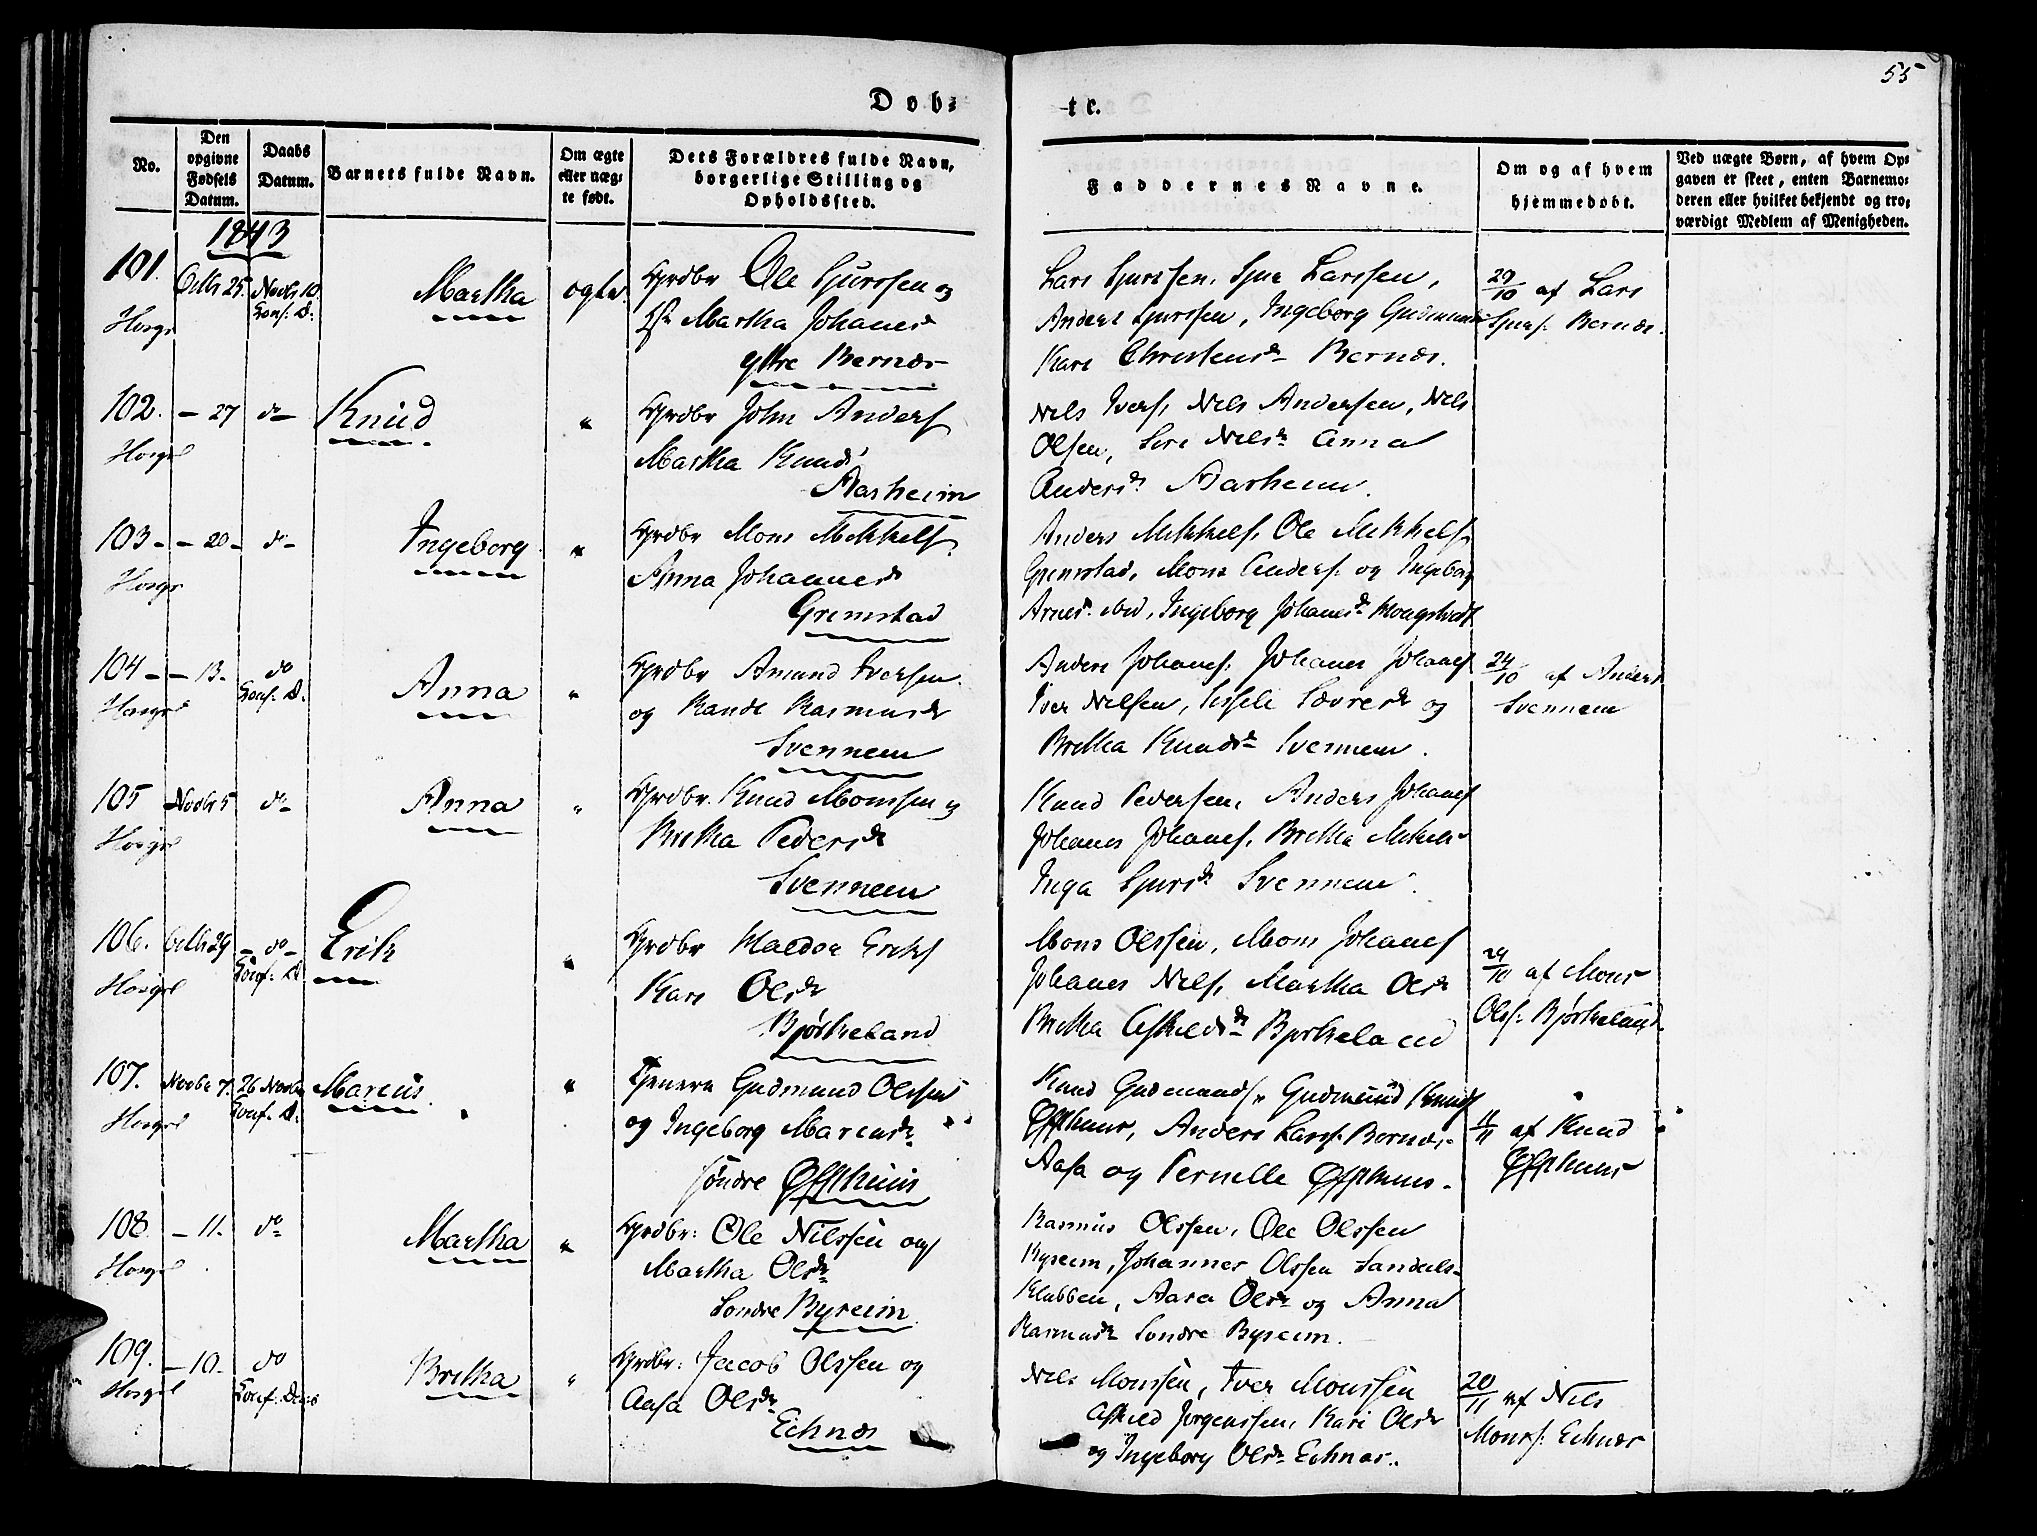 55
Døb-
-te.
No.
Den opgivne Fødsels Datum.
Daabs Datum.
Barnets fulde Navn.
Om ægte eller uægte født.
Dets Forældres fulde Navn, borgerlige Stilling og Opholdssted.
Faddernes Navne.
Om og af hvem hjemmedøbt.
Ved uægte Børn, af hvem Opgaven er skeet, enten Barnemoderen eller hvilket bekjendt og troværdigt Medlem af Menigheden.
1843
101. Octbr 25. Novbr 10. Martha ægte Grdbr Ole Sjurssen og
Conf: D:
Martha Johanesd
Ytre Bernæs
Lars Sjurssen, Sjur Larssen,
Anders Sjurssen, Ingeborg Gudmunds
Kari Christensdr Bernæs.
29/10 af Lars
Sjurs: Bernæs.
102. - 27 do Knud " Grdbr John Anders
Martha Knuds
Aarheim
Nils Ivers, Nils Andersen, Nils
Olsen, Siri Nilsdr Anna
Andersdr Aarheim.
103 - - 20 - do Ingeborg " Grdbr Mons Mikkels
Anna Johannesd
Grimstad
Anders Mikkels, Ole Mikkels
Grimstad, Mons Anders: og Ingeborg
Arnesd: ibid, Ingeborg Johanesdr
104 - - 13. do Anna " Grdbr Amund Iversen
Conf: D:
og Rande Rasmusdr
Svennem
Anders Johanes: Johanes Johanes
Iver Nilsen, Sissele Sævresdr og
Britha Knudsdr Svennem.
24/10 af Anders
Svennem
105 Novbr 5 do Anna " Grdbr. Knud Monssen og
Britha Pedersdr
Svennem
Knud Pedersen, Anders Johanes
Johanes Johanes, Britha Mikels
Inga Sjursdr Svennem.
106. Octbr 29 - do - Erik " Grdbr Haldor Eriks
Conf: D
Kari Olsdr
Bjørkeland
Mons Olssen, Mons Johanes
Johanes Nils, Martha Olsdr
Britha Askildsdr Byrkeland
29/10 af Mons
Ols: Bjørkeland
107. Novbr 7. 26 Novbr Marcus " Gudmund Olssen
Conf: D:
og Ingeborg Marcusdr
søndre
Knud Gudmunds, Gudmund Knuds
Anders Larss: Bernæs,
Aasa og Pernille
11/11 af Knud
108 - 11. do Martha " Grdbr: Ole Nilssen og
Martha Olsdr
Søndre Byreim
Rasmus Olssen, Ole Olssen
Byreim, Johannes Olssen Sandals-
Klubben, Aasa Olsdr og Anna
Rasmusdr Søndre Byreim.
109. - 10. do Britha " Grdbr: Jacob Olssen og
Aasa Olsdr
Echnæs
Nils Monssen, Iver Monssen
Askild Jørgenssen, Kari Olsdr
og Ingeborg Olsdr Echnæs.
20/11 af Nils
Mons: Echnæs